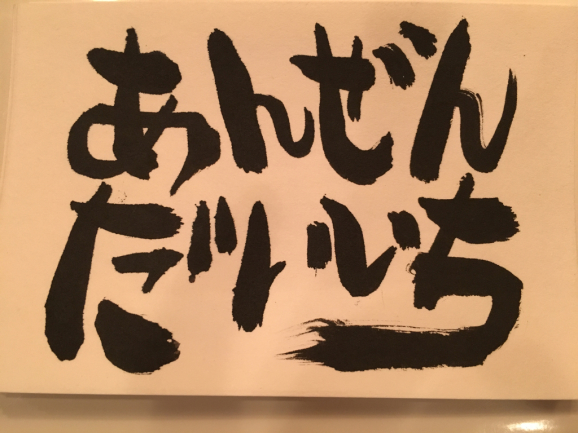 あんぜん
だいいち